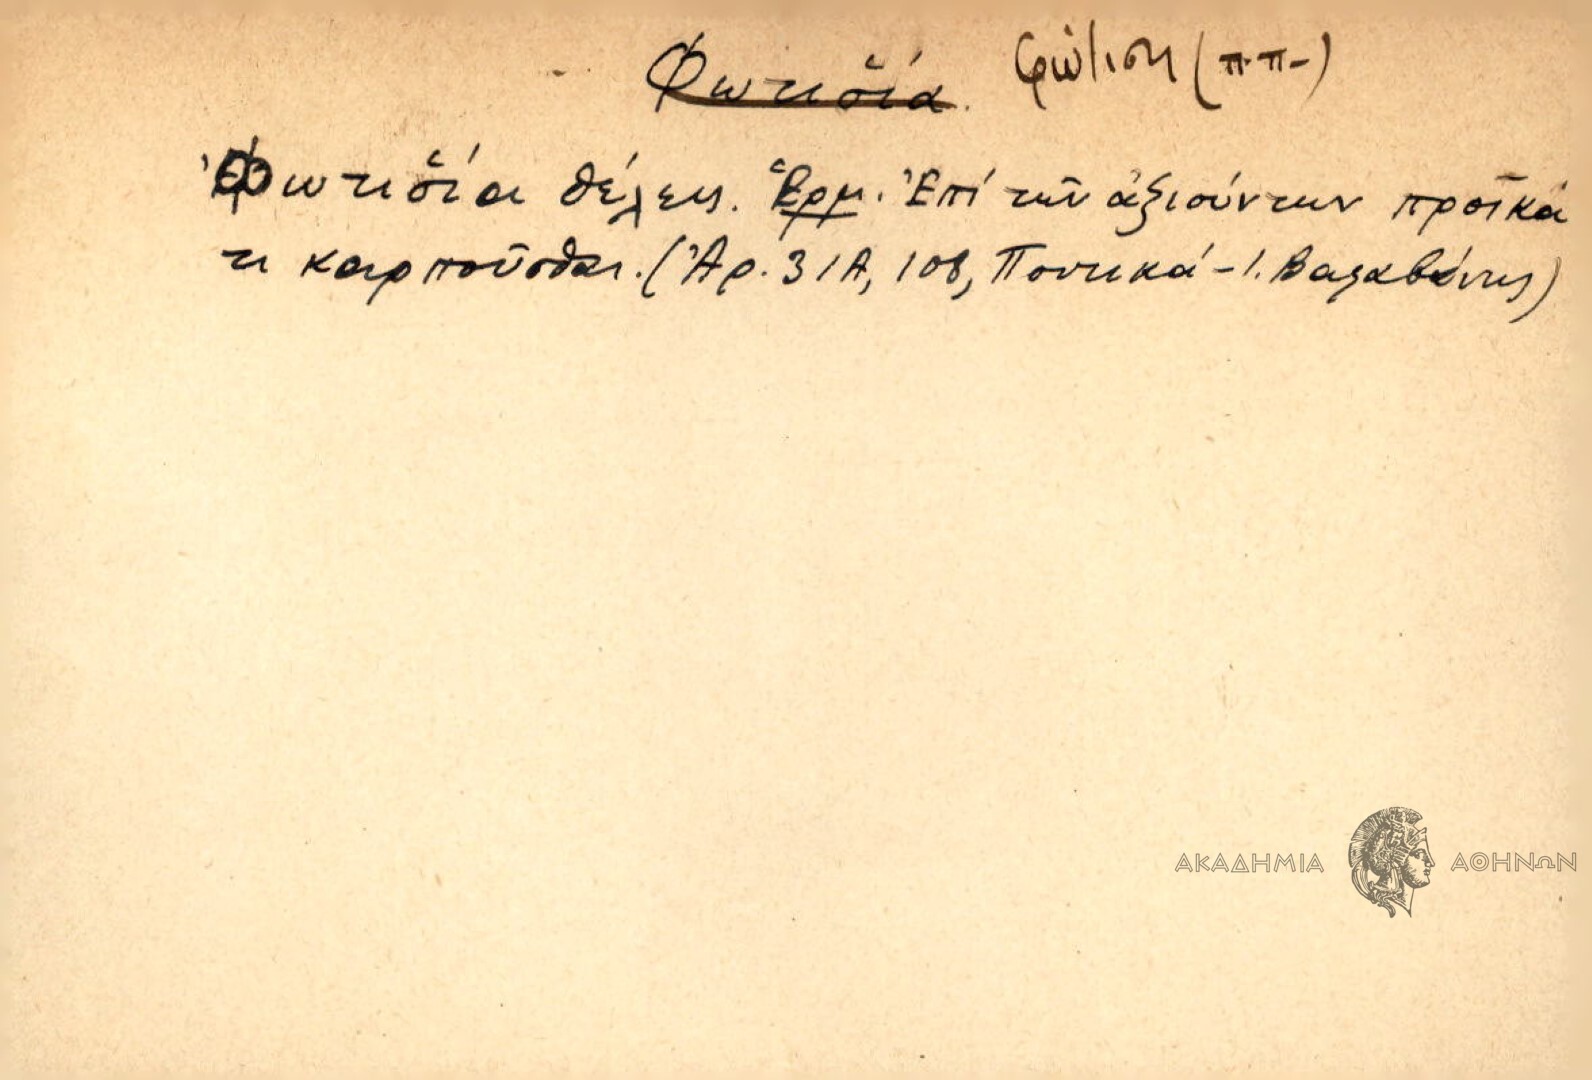 Φωτισία. φώτιση (π.π-)
Φωτισία θέλεις. Ἑρμ. Ἐπί τῶν ἀξιούντων προῖκά
τι καρποῦσθαι. (Ἀρ. 31Α, 108, Ποντικά - Ι. Βαλαβάνης)
ΑΚΑΔΗΜΙΑ ΑΘΗΝΩΝ